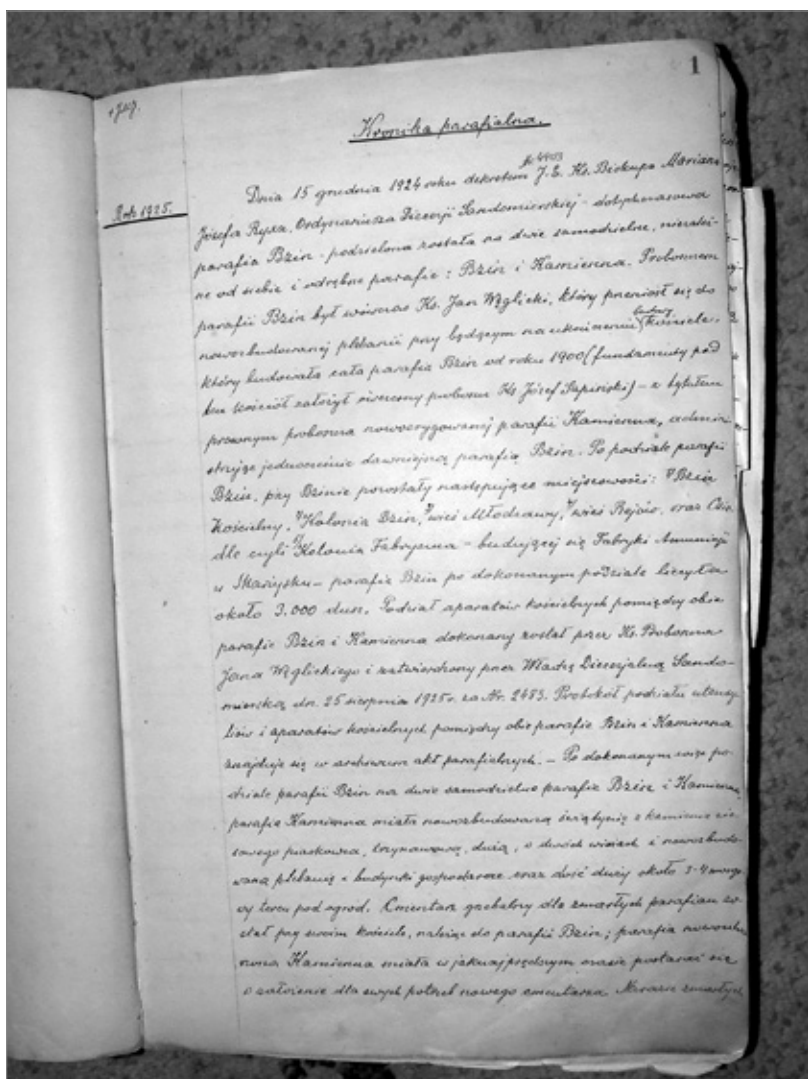 1
Kronika parafialna.
Rok 1925.
Dnia 15 grudnia 1924 roku dekretem J. E. Ks. Biskupa Mariana
Józefa Ryxa, Ordynariusza Diecezji Sandomierskiej - dotychczasowa
parafia Bzin - podzielona została na dwie samodzielne, niezależ-
ne od siebie i odrębne parafie: Bzin i Kamienna. Proboszczem
parafii Bzin był wówczas Ks. Jan Węglicki, który przeniósł się do
nowozbudowanej plebanii przy będącym na ukończeniu kościele,
który budowała cała parafia Bzin od roku 1900 (fundamenty pod
ten kościół założył ówczesny proboszcz Ks Józef) - z tytułem
prawnym proboszcza nowoerygowanej parafii Kamienna, admini-
strując jednocześnie dawniejszą parafią Bzin. Po podziale parafii
Bzin, przy Bzinie pozostały następujące miejscowości: Bzin
Kościelny, Kolonia Bzin, wieś Młodzawy, wieś Rejów, oraz Osie-
dle czyli Kolonia Fabryczna - budującej się Fabryki Amunicji
w Skarżysku - parafia Bzin po dokonanym podziale liczyła
około 3.000 dusz. Podział aparatów kościelnych pomiędzy obie
parafie Bzin i Kamienna dokonany został przez Ks. Proboszcza
Jana Węglickiego i zatwierdzony przez Władzę Diecezjalną Sando-
mierską dn. 25 sierpnia 1925 r. za Nr. 2483. Protokół podziału utensy-
liów i aparatów kościelnych pomiędzy obie parafie Bzin i Kamienna
znajduje się w archiwum akt parafialnych. - Po dokonanym więc po-
dziale parafii Bzin na dwie samodzielne parafie Bzin i Kamienna,
parafia Kamienna miała nowozbudowaną świątynię z kamienia cio-
sowego piaskowca, trzynawową, dużą, o dwóch wieżach i nowozbudo-
waną plebanię i budynki gospodarcze oraz dość duży około 3-4 morgo-
wy teren pod ogród. Cmentarz grzebalny dla zmarłych parafian zo-
stał przy swoim kościele, należąc do parafii Bzin; parafia
Kamienna miała w jaknajprędszym czasie postarać się
o założenie dla swych potrzeb nowego cmentarza. zmarłych